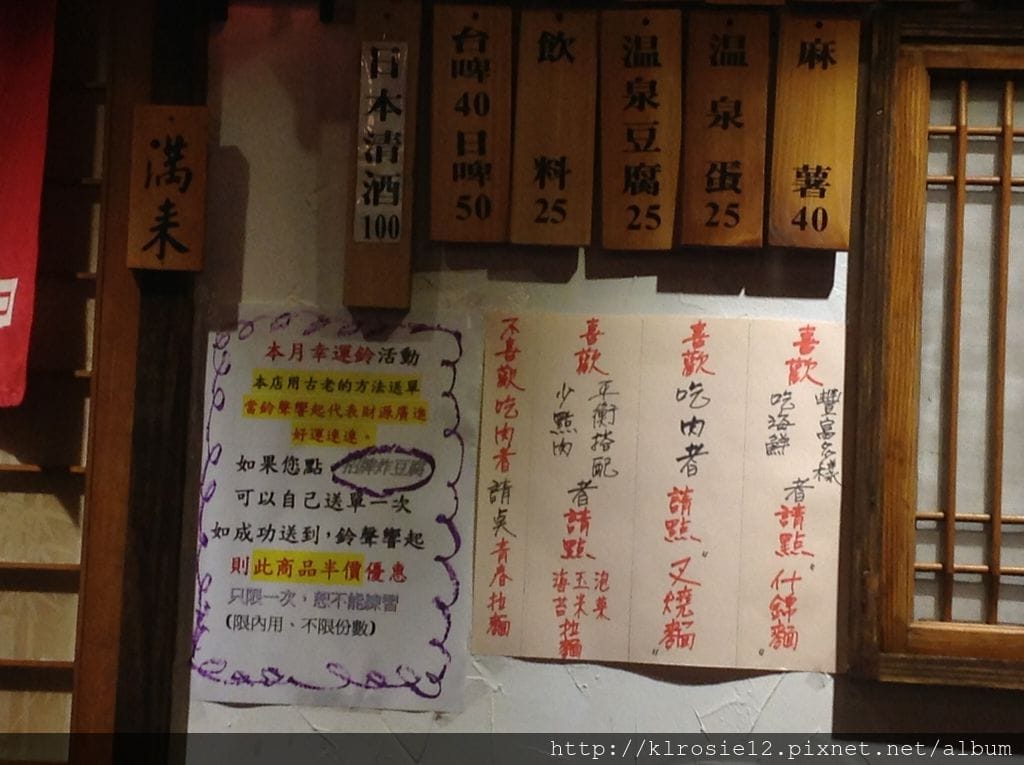 麻薯40
温泉蛋25
温泉豆腐25
飲料25
台啤40日啤50
日本清酒100
滿来
本月幸運鈴活動
本店用古老的方法送單
當鈴聲響起代表財源廣進
好運連連。
如果您點 招牌炸豆腐
可以自己送單一次
如成功送到,鈴聲響起
則此商品半價優惠
只限一次，恕不能練習
(限內用、不限份數)
喜歡
豐富多樣
吃海鮮
者請點"什錦麵"
喜歡吃肉者請點"叉燒麵"
喜歡
正衡搭配
少點肉
者請點
泡菜
玉米
海苔拉麵
不喜歡吃肉者請點青春拉麵
http://klrosie12.pixnet.net/album